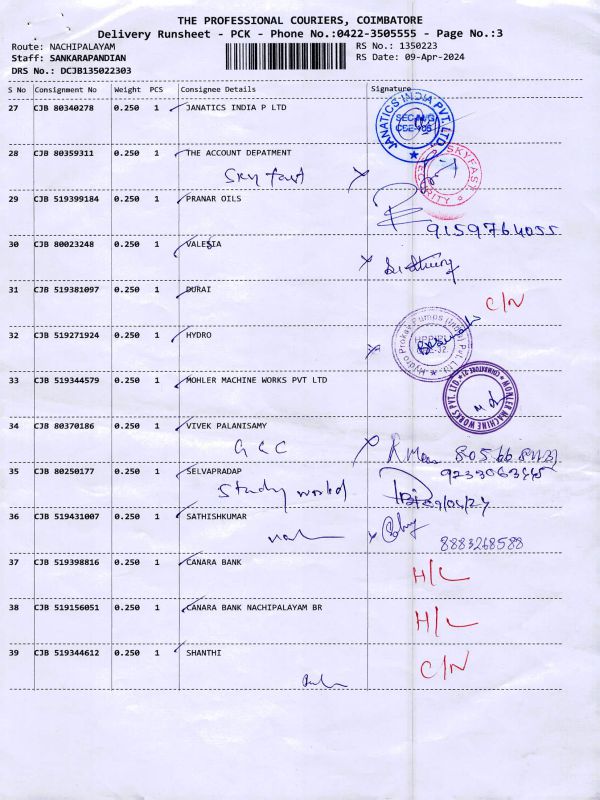 THE PROFESSIONAL COURIERS, COIMBATORE
Delivery Runsheet - PCK - Phone No.:0422-3505555 - Page No.:3
Route: NACHIPALAYAM RS No.: 1350223
Staff: SANKARAPANDIAN RS Date: 09-Apr-2024
DRS No.: DCJB135022303
S No Consignment No Weight PCS Consignee Details Signature
27 CJB 80340278 0.250 1 JANATICS INDIA P LTD
JANATICS INDIA PVT. LTD.
28 CJB 80359311 0.250 1 THE ACCOUNT DEPATMENT
Sky fast
SKYFAST
SECURITY
29 CJB 519399184 0.250 1 PRANAR OILS
9159764055
30 CJB 80023248 0.250 1 VALESIA
31 CJB 519381097 0.250 1 DURAI
C/N
32 CJB 519271924 0.250 1 HYDRO
Hydro Prokav Pumps (India) Pvt. Ltd.
33 CJB 519344579 0.250 1 MOHLER MACHINE WORKS PVT LTD
MOHLER MACHINE WORKS PVT. LTD.
COIMBATORE
34 CJB 80370186 0.250 1 VIVEK PALANISAMY
G & C
35 CJB 80250177 0.250 1 SELVAPRADAP
Study world
36 CJB 519431007 0.250 1 SATHISHKUMAR
8883268588
37 CJB 519398816 0.250 1 CANARA BANK
H/L
38 CJB 519156051 0.250 1 CANARA BANK NACHIPALAYAM BR
H/L
39 CJB 519344612 0.250 1 SHANTHI
C/N